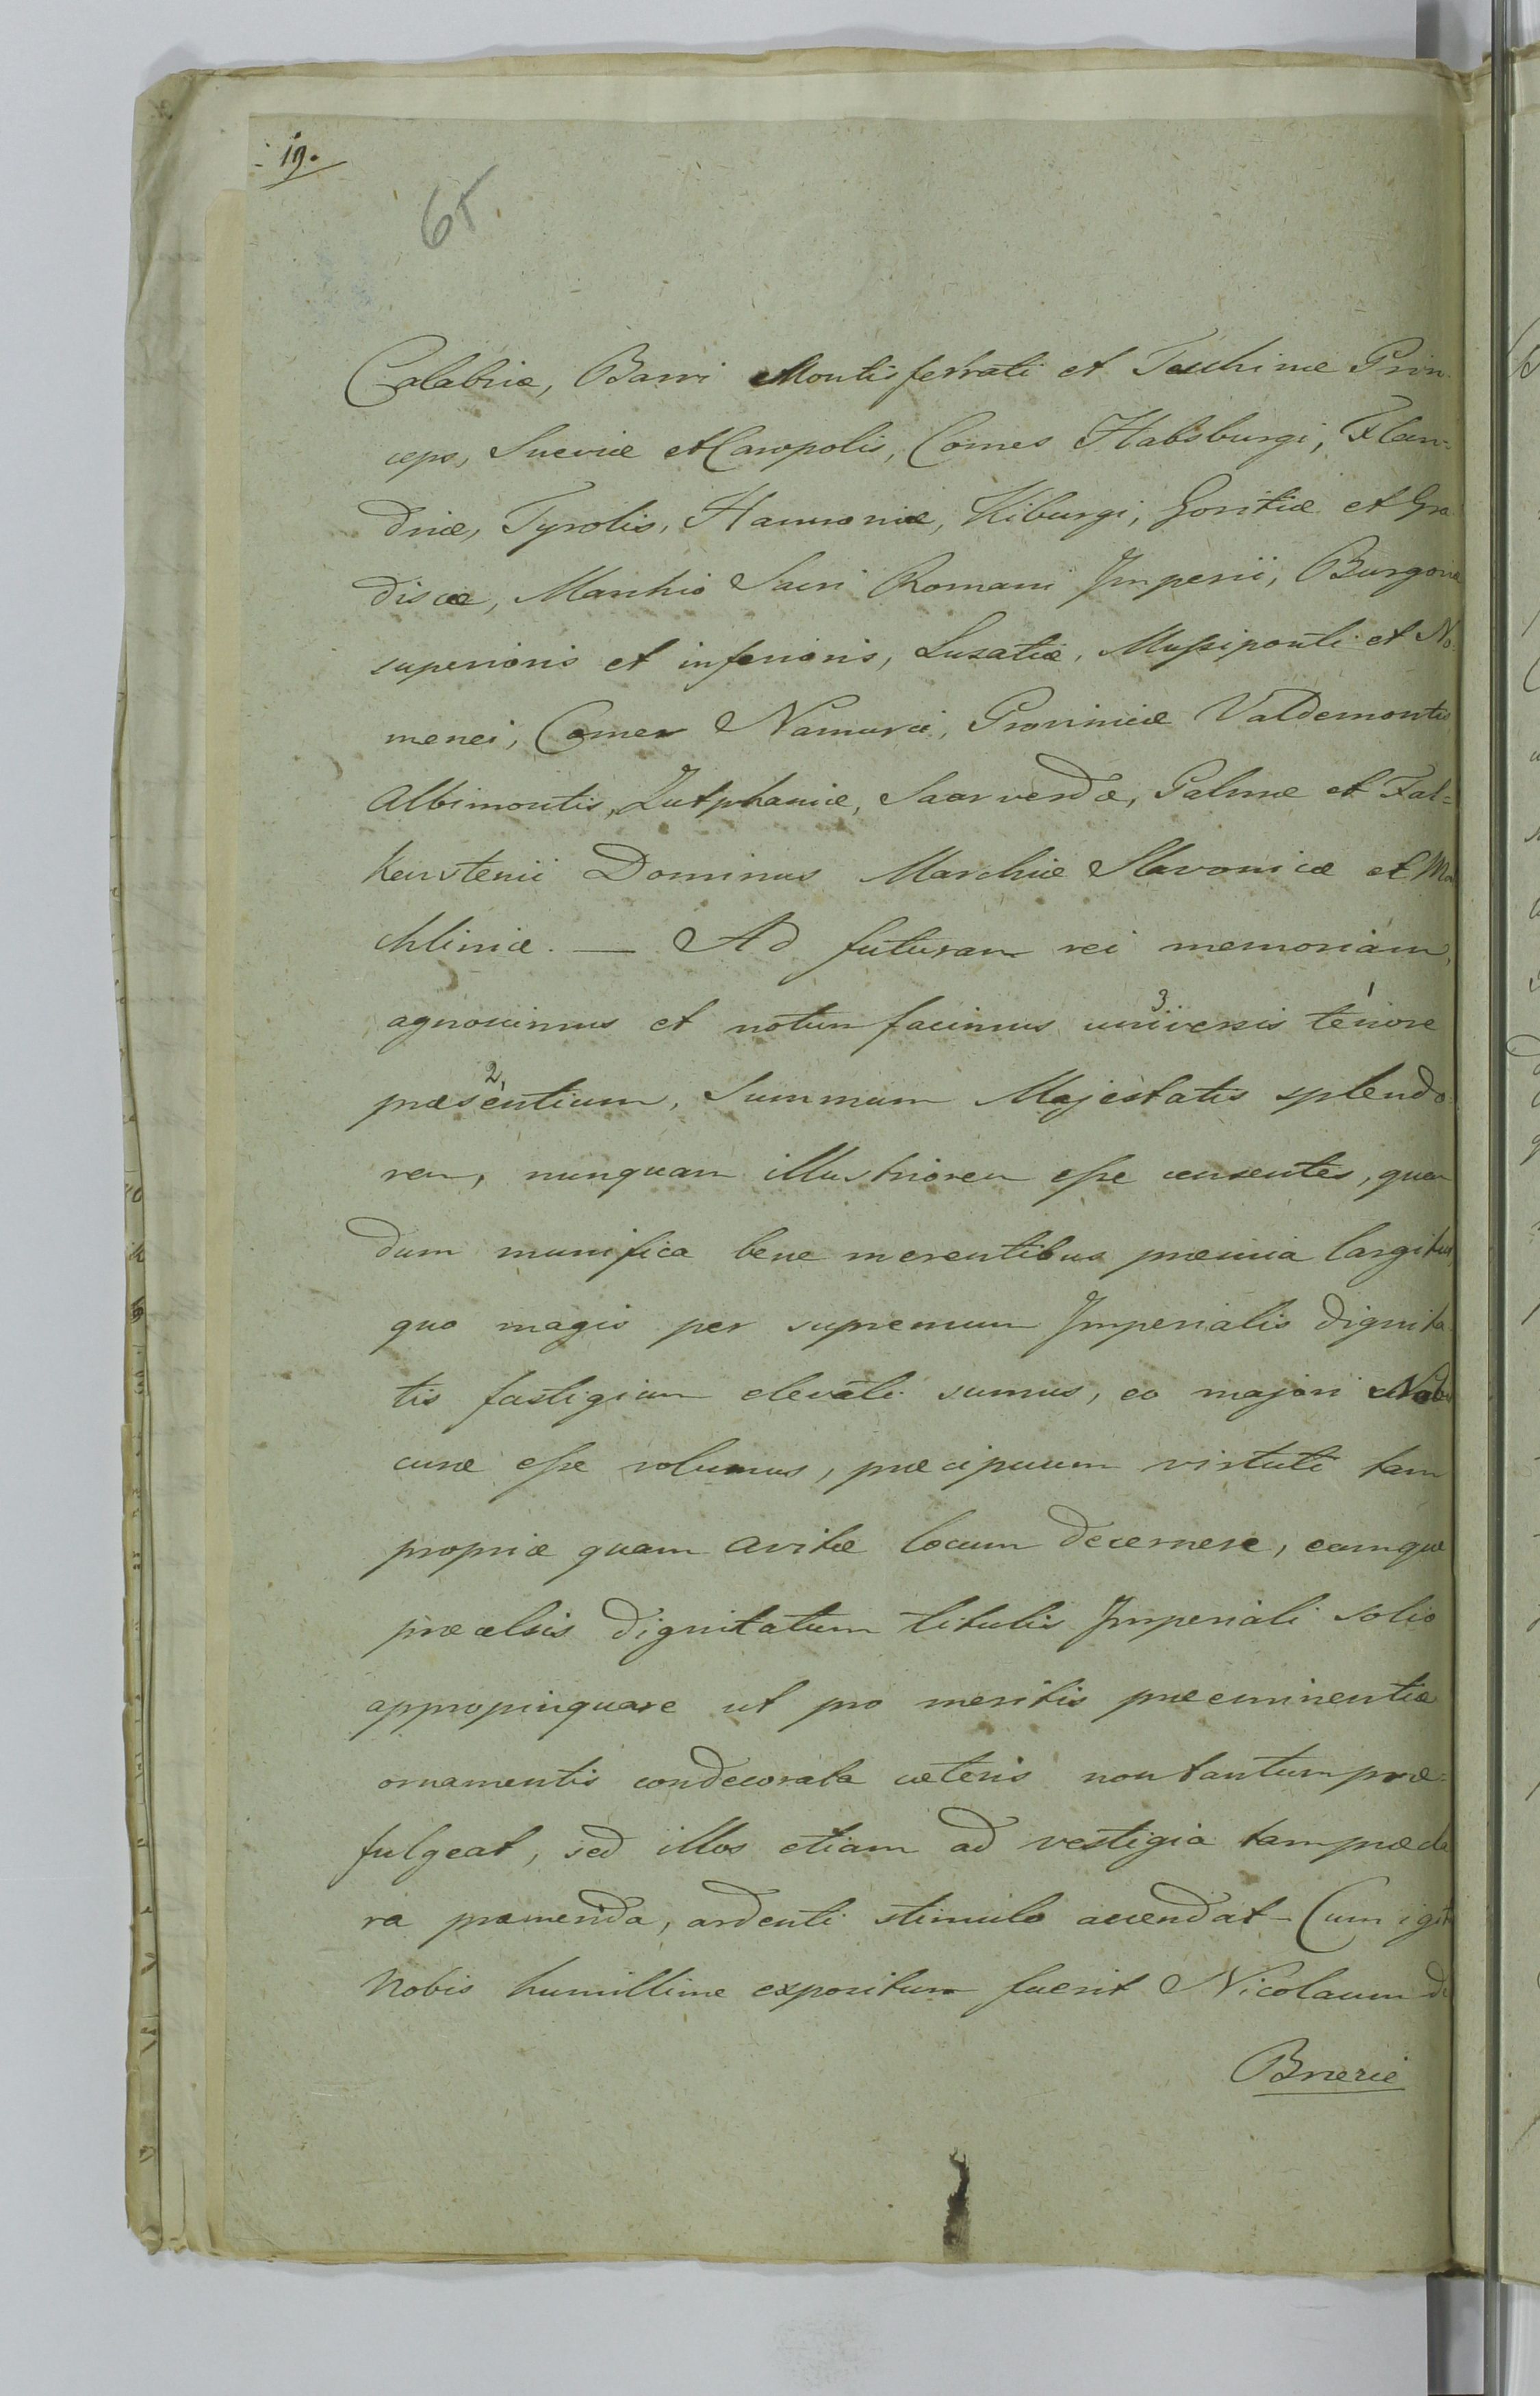 19.
65
Calabriæ, Barri Montisferrati et Teschinæ Prin-
ceps, Sueviæ et Caropolis, Comes Habsburgi, Flan=
driæ, Tyrolis, Hannoniæ, Kiburgi, Goritiæ et Gra
discæ, Marchio Sacri Romani Imperii, Burgoviæ
superioris et inferioris, Lusatiæ, Mussiponti et No
menei, Comes Namurci, Provinciæ Valdemontis
Albimontis, Zutphaniæ, Saarverdæ, Salmæ et Fal=
kenstenii Dominus Marchiæ Slavonicæ et Me
chliniæ. — Ad futuram rei memoriam,
agnoscimus et notum facimus 3 universis 1 tenore
2 præsentium, Summum Majestatis splendo
rem, nunquam illustriorem esse censentes, quam
dum munifica bene merentibus præmia largitur,
quo magis per supremum Imperialis dignita
tis fastigium elevati sumus, eo majori Nobis
curæ esse volumus, præcipuum virtuti tam
propriæ quam avitæ locum decernere, eamque
præcelsis dignitatum titulis Imperiali solio
appropinquare ut pro meritis præeminentiæ
ornamentis condecorata cæteris non tantum præ=
fulgeat, sed illos etiam ad vestigia tam præcla
ra premenda, ardenti stimulo accendat - Cum igit
Nobis humillime expositum fuerit Nicolaum de
Bnerie